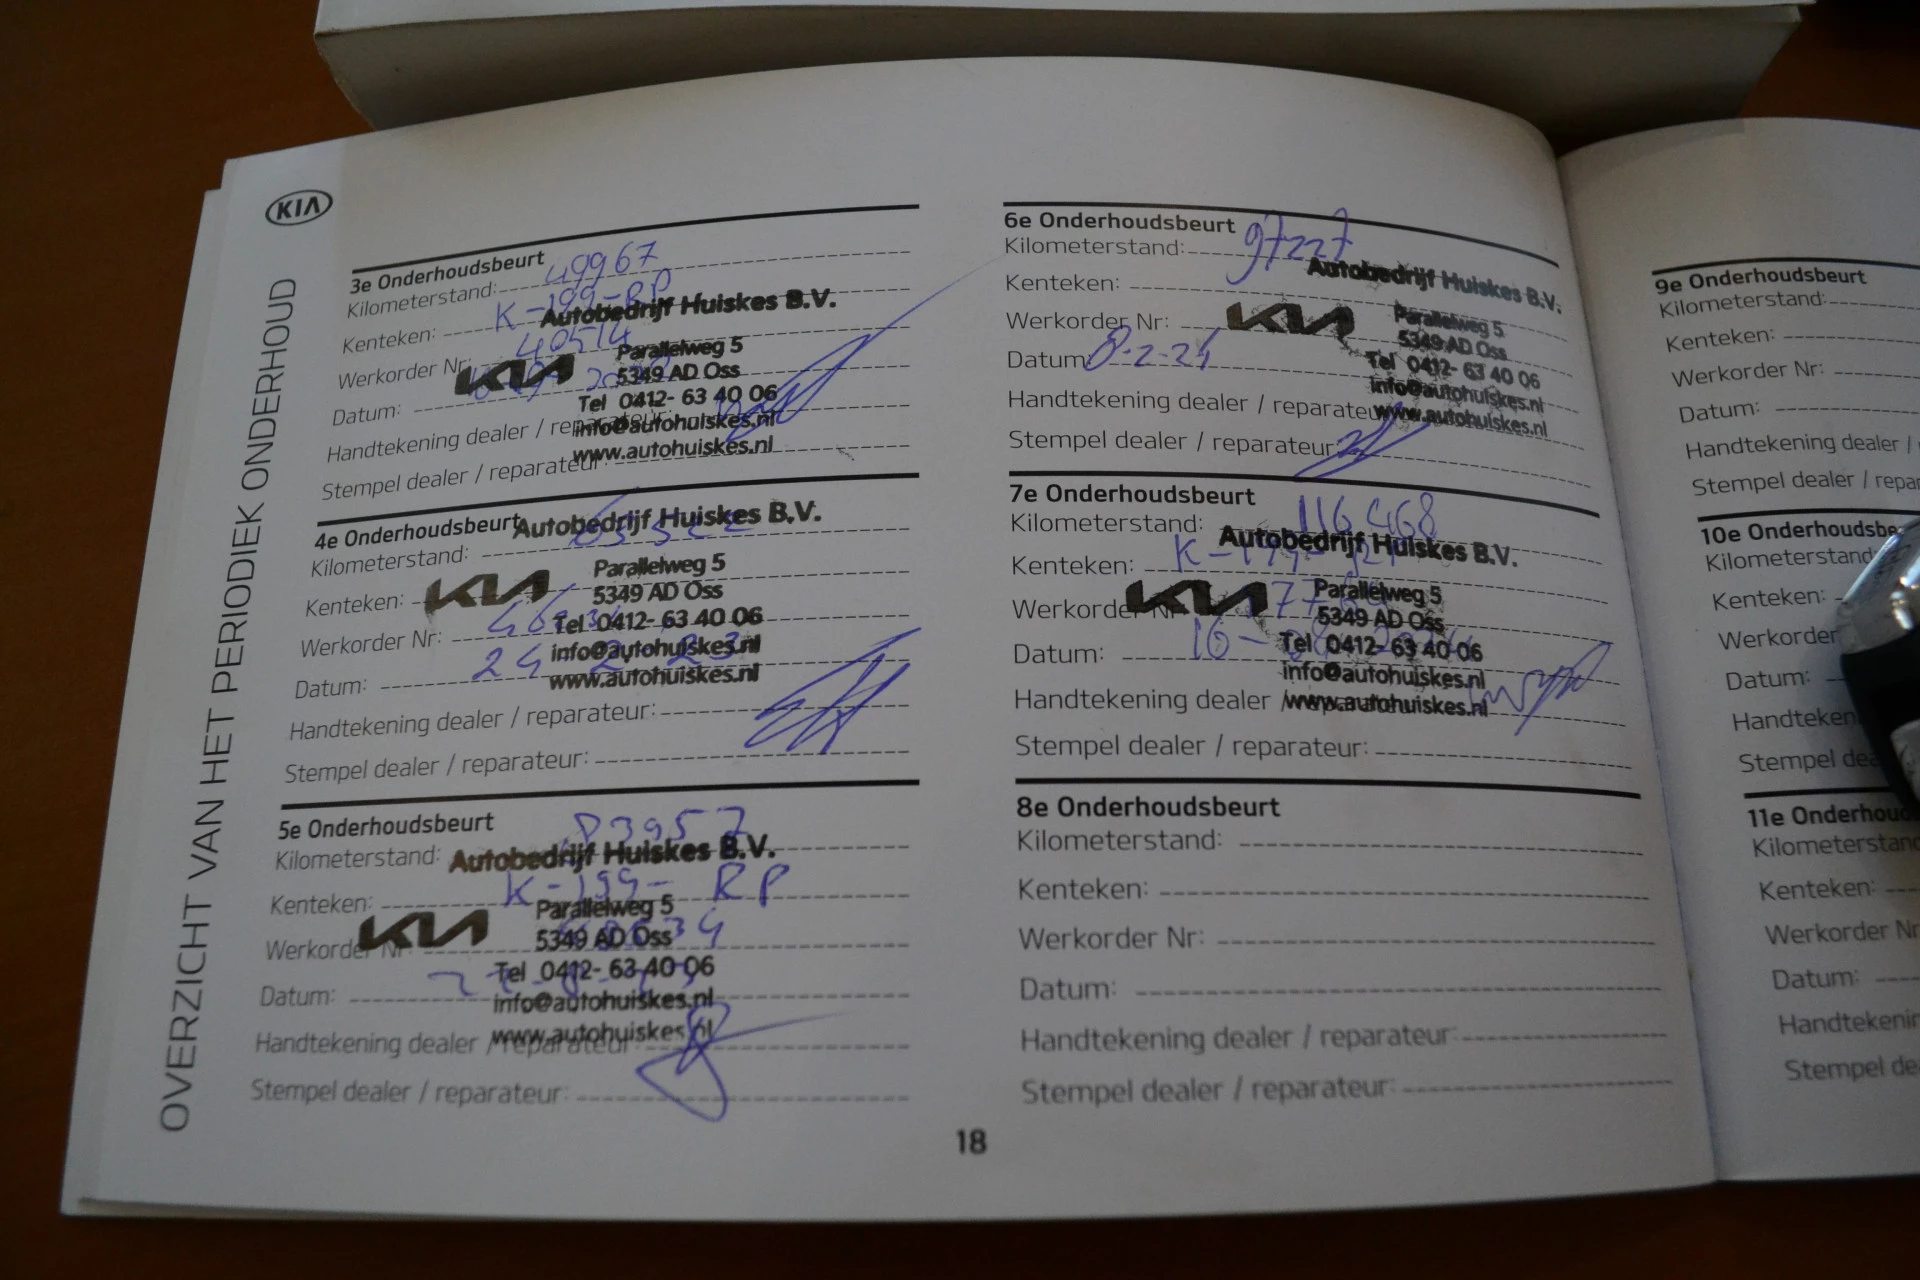 KIA
OVERZICHT VAN HET PERIODIEK ONDERHOUD
3e Onderhoudsbeurt
Kilometerstand: 49967
Kenteken: K-199-RP
Autobedrijf Huiskes B.V.
Werkorder Nr: 40514
KIA
Parallelweg 5
5349 AD Oss
Datum:
Tel 0412- 63 40 06
Handtekening dealer / reparateur:
info@autohuiskes.nl
www.autohuiskes.nl
Stempel dealer / reparateur:
4e Onderhoudsbeurt
Autobedrijf Huiskes B.V.
Kilometerstand:
Kenteken:
KIA
Parallelweg 5
5349 AD Oss
Werkorder Nr:
Tel 0412- 63 40 06
info@autohuiskes.nl
www.autohuiskes.nl
Datum: 24 2 23
Handtekening dealer / reparateur:
Stempel dealer / reparateur:
5e Onderhoudsbeurt
Kilometerstand: 83957
Autobedrijf Huiskes B.V.
Kenteken: K-199- RP
KIA
Parallelweg 5
5349 AD Oss
Werkorder Nr:
Tel 0412- 63 40 06
Datum:
info@autohuiskes.nl
www.autohuiskes.nl
Handtekening dealer / reparateur:
Stempel dealer / reparateur:
6e Onderhoudsbeurt
Kilometerstand: 97227
Autobedrijf Huiskes B.V.
Kenteken:
Werkorder Nr:
KIA
Parallelweg 5
5349 AD Oss
Datum: 8-2-24
Tel 0412- 63 40 06
info@autohuiskes.nl
www.autohuiskes.nl
Handtekening dealer / reparateur:
Stempel dealer / reparateur:
7e Onderhoudsbeurt
Kilometerstand: 116468
Autobedrijf Huiskes B.V.
Kenteken:
KIA
Parallelweg 5
5349 AD Oss
Werkorder Nr:
Tel 0412- 63 40 06
Datum:
info@autohuiskes.nl
www.autohuiskes.nl
Handtekening dealer /
Stempel dealer / reparateur:
8e Onderhoudsbeurt
Kilometerstand:
Kenteken:
Werkorder Nr:
Datum:
Handtekening dealer / reparateur:
Stempel dealer / reparateur:
18
9e Onderhoudsbeurt
Kilometerstand:
Kenteken:
Werkorder Nr:
Datum:
Handtekening dealer /
Stempel dealer / repa
10e Onderhoudsbe
Kilometerstand
Kenteken:
Werkorder
Datum:
Handteken
Stempel dea
11e Onderhoud
Kilometerstand
Kenteken:
Werkorder Nr
Datum:
Handtekenin
Stempel de